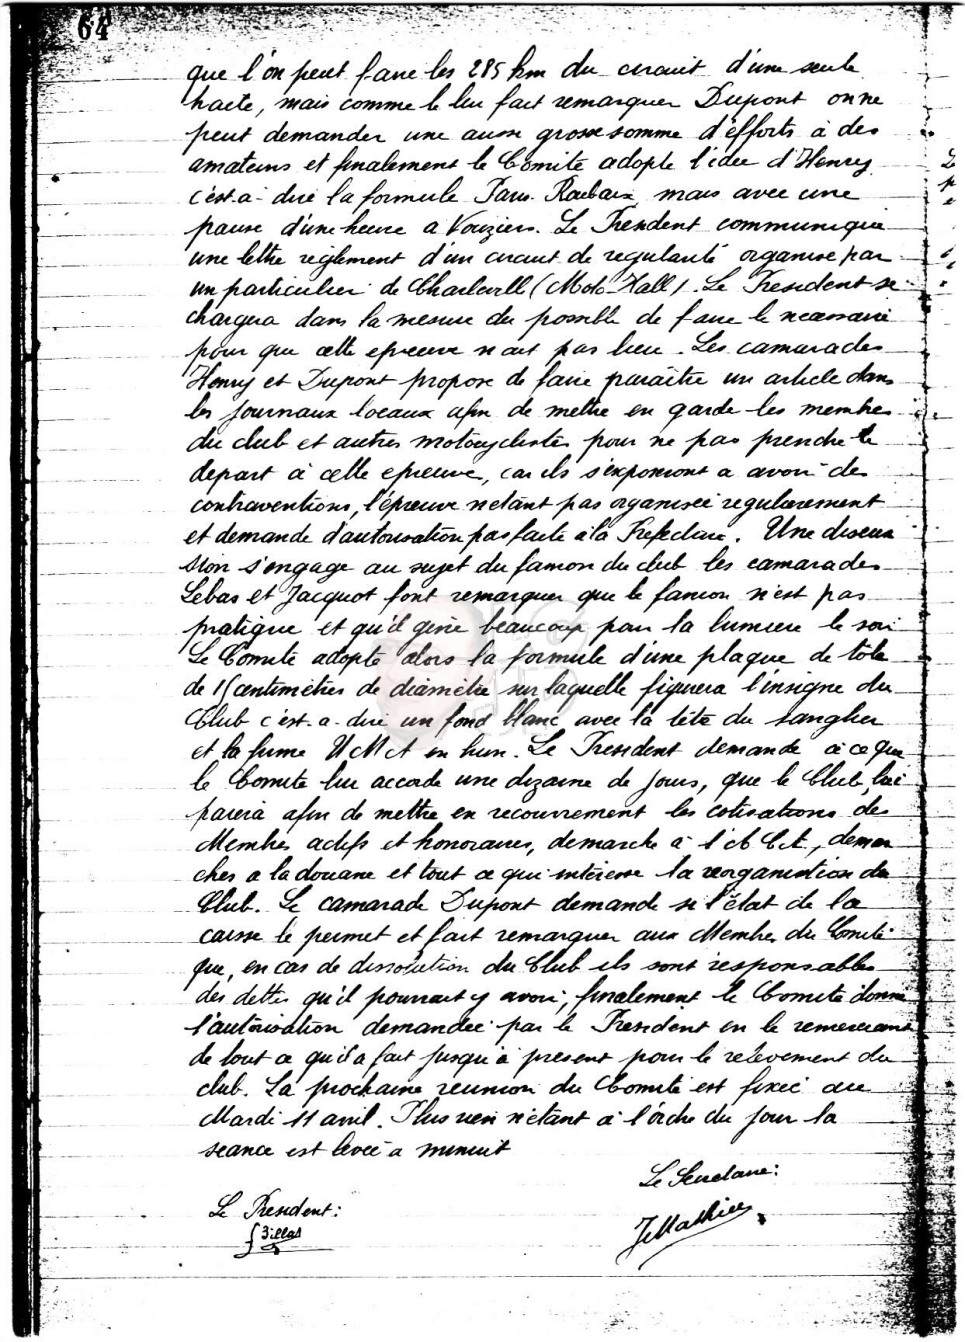 64
que l'on peut faire les 285 km du circuit d'une seule
traite, mais comme le lui fait remarquer Dupont on ne
peut demander une aussi grosse somme d'éfforts à des
amateurs et finalement le Comité adopte l'idée d'Henry
c'est-à-dire la formule Paris-Roubaix, mais avec une
pause d'une heure a Vouziers. Le President communique
une lettre règlement d'un circuit de regularité organisé par
un particulier de Charleville (Moto-Hall). Le President se
chargera dans la mesure du possible de faire le necessaire
pour que cette epreuve n'ait pas lieu. Les camarades
Henry et Dupont propose de faire paraître un article dans
les journaux locaux afin de mettre en garde les membres
du club et autres motocyclistes pour ne pas prendre le
depart à cette epreuve, car ils s'exposeront a avoir des
contraventions, l'épreuve n'etant pas organisée regulierement
et demande d'autorisation pas faite à la Prefecture. Une discus
sion s'engage au sujet du fanion du club les camarades
Lebas et Jacquot font remarquer que le fanion n'est pas
pratique et qu'il gène beaucoup pour la lumiere le soir
Le Comité adopte alors la formule d'une plaque de tole
de 15 centimètres de diamètre sur laquelle figurera l'insigne du
Club c'est-a-dire un fond blanc avec la tête du sanglier
et la firme U M A en
Le President demande à ce que
le Comite lui accorde une dizaine de jours, que le Club lui
paiera afin de mettre en recouvrement les cotisations des
Membres actifs et honoraires, demarche à l'A C A, demar
ches a la douane et tout ce qui interesse la reorganisation du
Club. Le camarade Dupont demande si l'état de la
caisse le permet et fait remarquer aux Membres du Comité
que, en cas de dissolution du Club ils sont responsables
des dettes qu'il pourrait y avoir, finalement le Comité donne
l'autorisation demandée par le President en le remerciant
de tout ce qu'il a fait jusqu'à present pour le relevement du
club. La prochaine reunion du Comité est fixée au
Mardi 11 avril. Plus rien n'étant à l'ordre du jour la
seance est levée a minuit
Le Secretaire:
Le President:
JMathieu